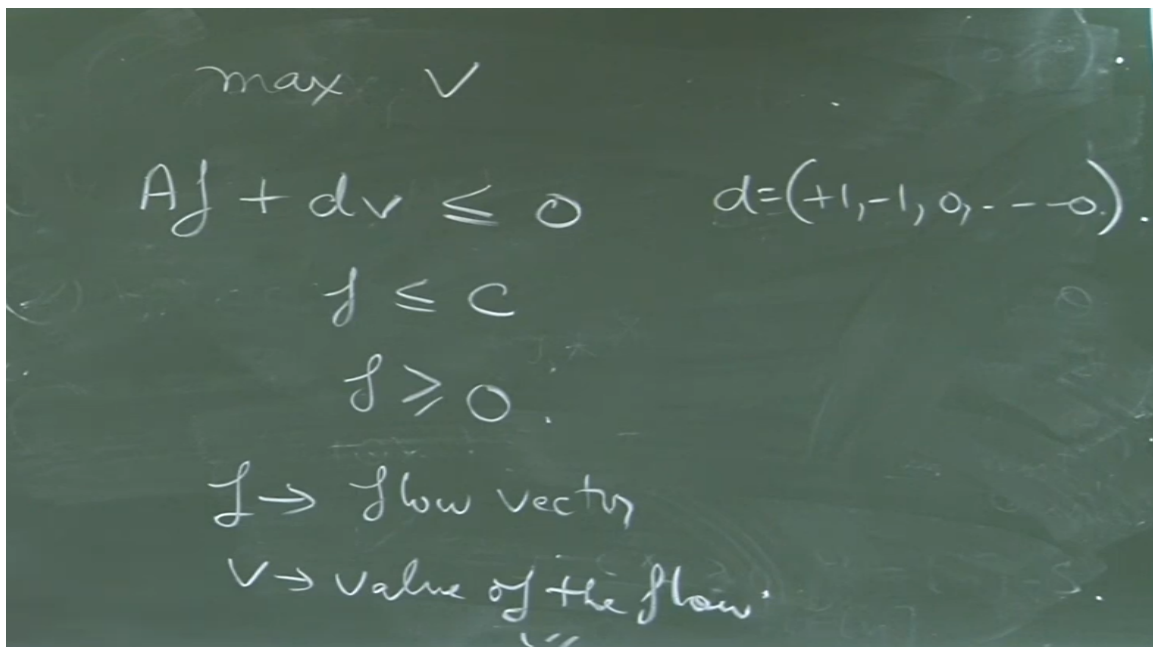 max v
Af + dv ≤ 0 d=(+1,-1, 0,- - - 0).
f ≤ c
f ≥ 0.
f → flow vector
v → value of the flow.